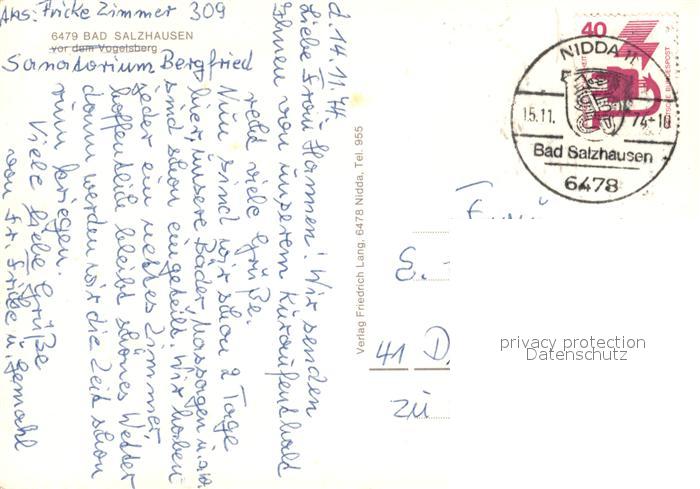 Abs: Fricke Zimmer 309
6479 BAD SALZHAUSEN
vor dem Vogelsberg
Sanatorium Bergfried
d. 14.11.74.
Liebe Frau Hannen! Wir senden
Ihnen von unserem Kuraufenthalt
recht viele Grüße.
Nun sind wir schon 2 Tage
hier, unsere Bäder Massagen u.s.w.
sind schon eingeteilt. Wir haben
jeder ein nettes Zimmer,
hoffentlich bleibt schönes Wetter
dann werden wir die Zeit schon
rum kriegen.
Viele liebe Grüße
von Fr. Fricke u. Gemahl
Verlag Friedrich Lang, 6478 Nidda, Tel. 955
40
DEUTSCHE BUNDESPOST
NIDDA 11
15.11. 74-18
Bad Salzhausen
6478
S.-
41 D
zu
privacy protection
Datenschutz